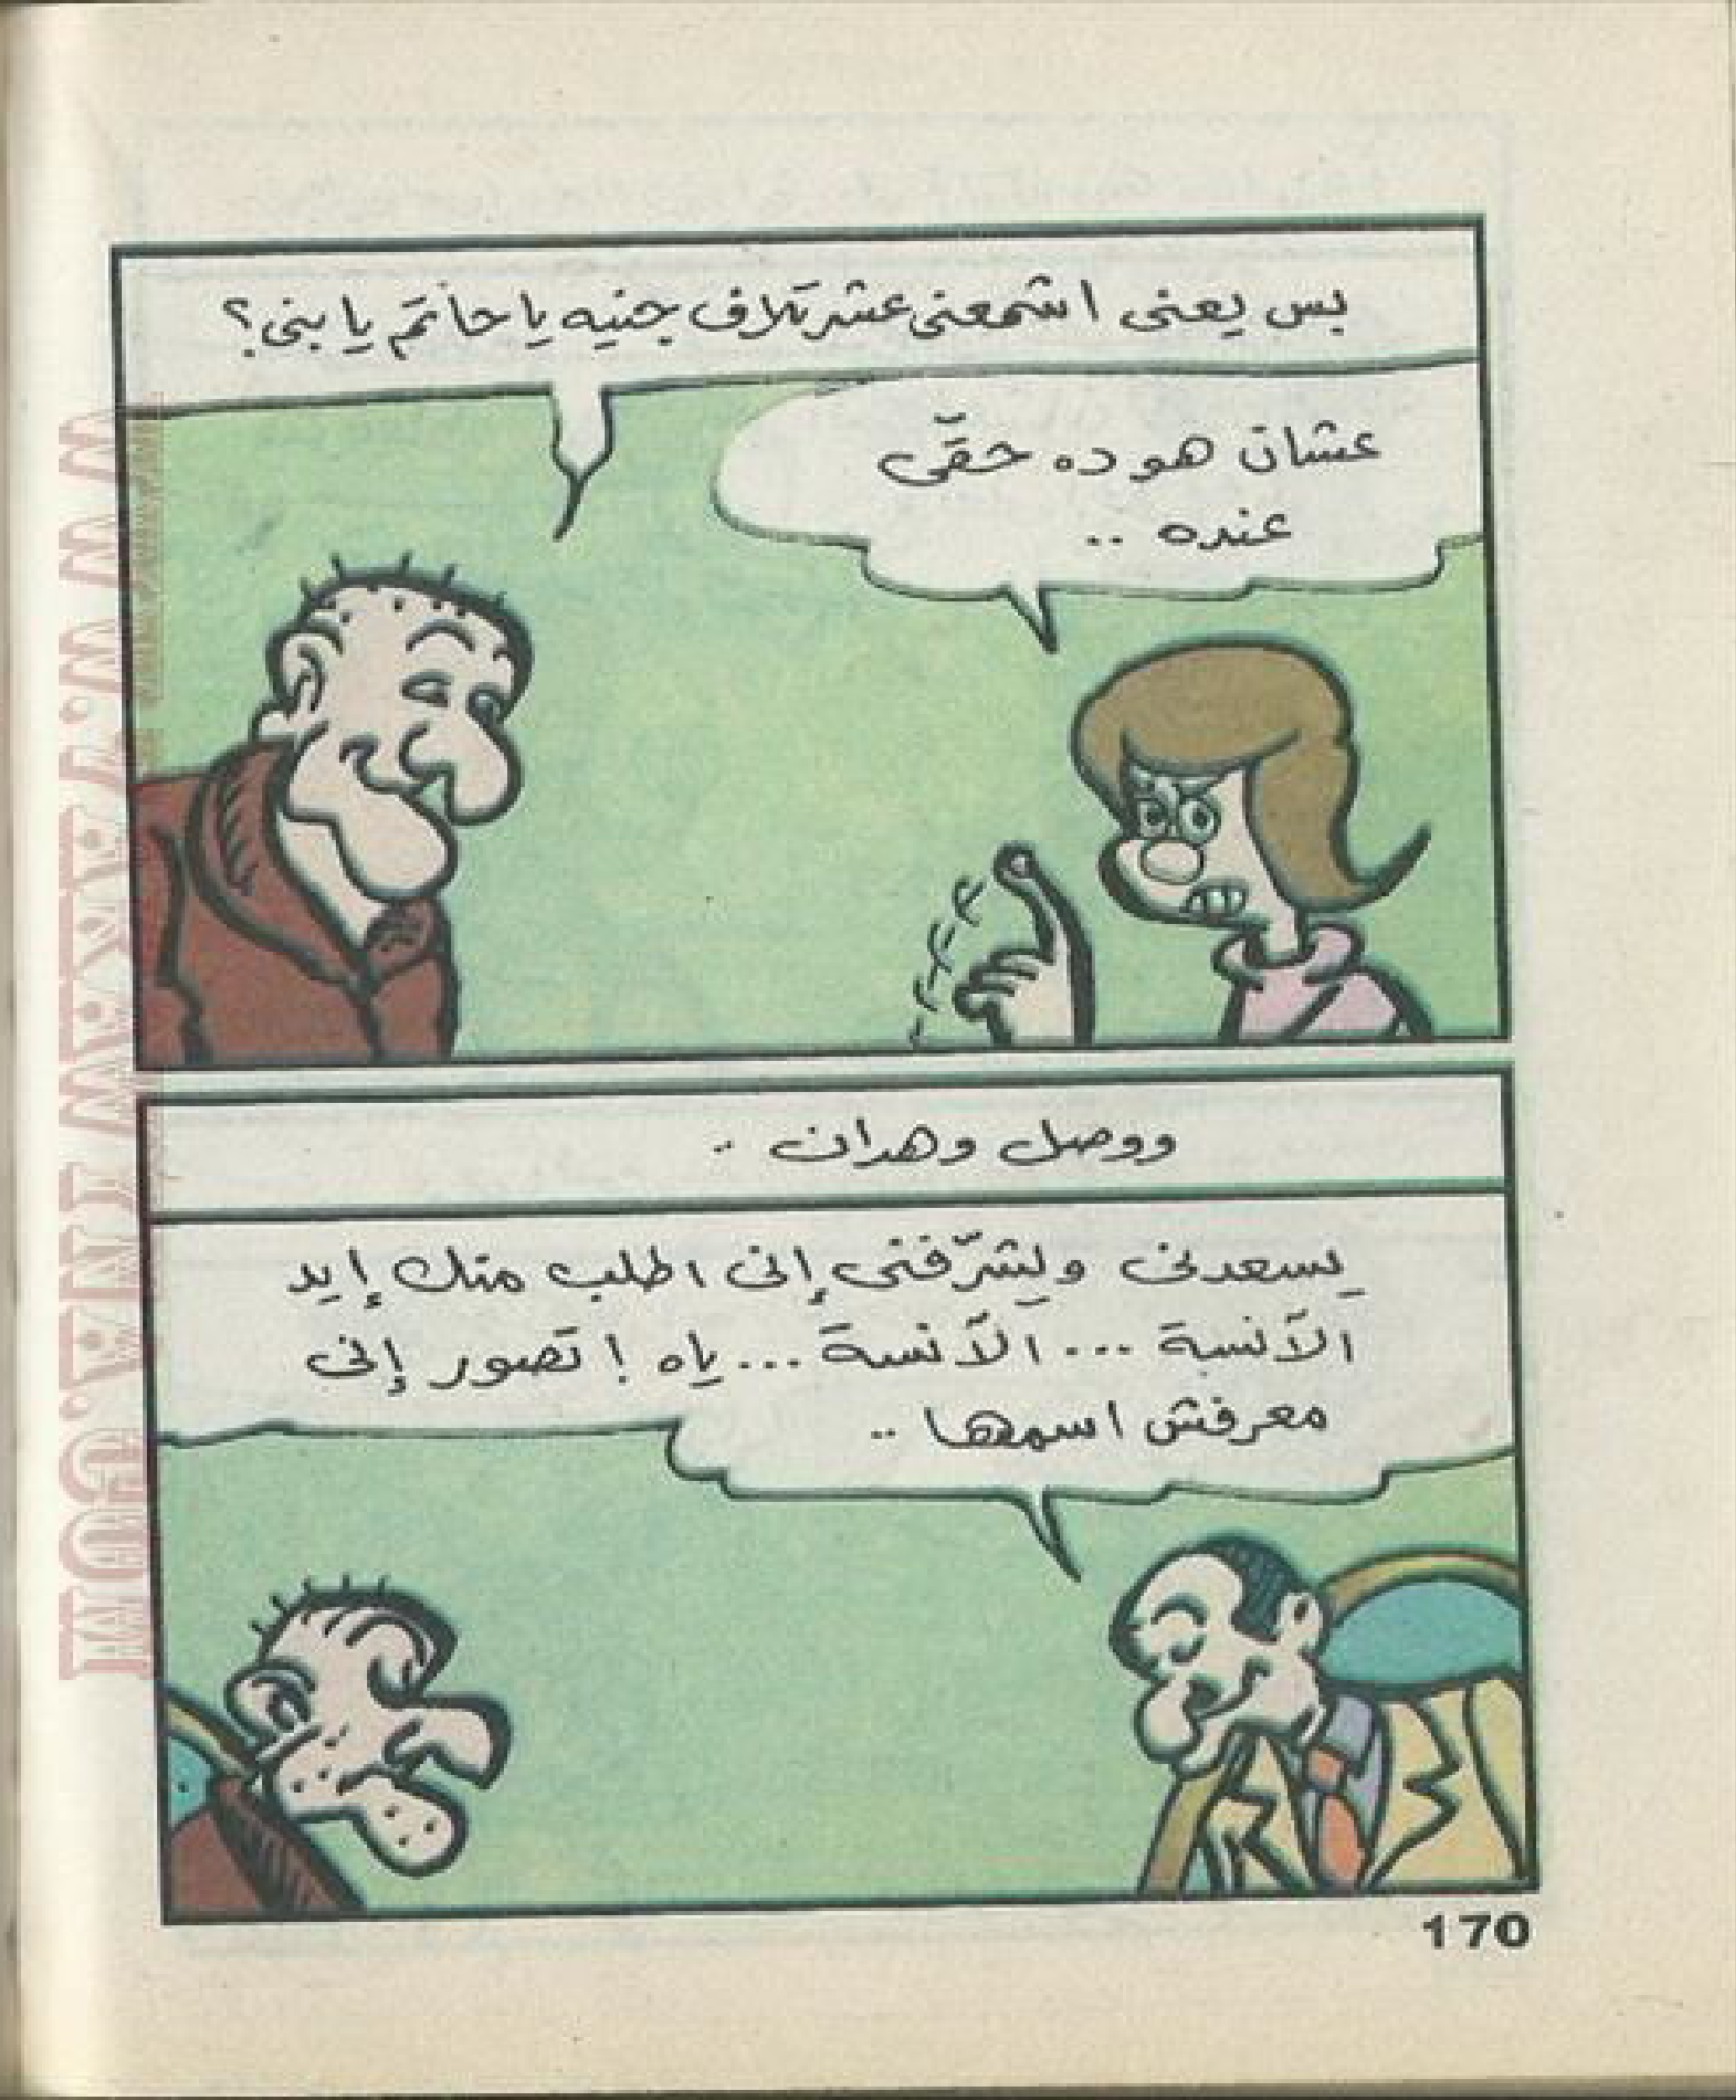 بس يعنى اشمعنى عشر تلاف جنيه يا حاتم يا بنى؟
عشان هو ده حقّى
عنده ..
ووصل وهدان ..
يسعدنى ويشرّفنى إنى اطلب منك إيد
الآنسة ... الآنسة ... ياه ! تصور إنى
معرفش اسمها ..
170